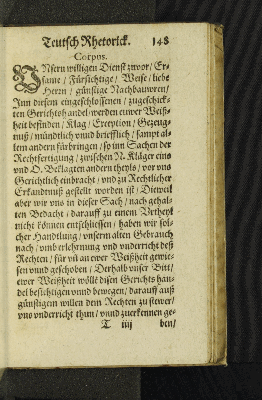 Teutsch Rhetorick. 148
Corpus.
UNsern willigen Dienst zuvor / Er-
same / Fürsichtige / Weise / liebe
Herrn / günstige Nachbauwren /
Inn diesem eingeschlossenen / zugeschick-
ten Gerichtshandel / werden euwer Weiß-
heit befinden / Klag / Exception / Gezeug-
nuß / mündtlich vnnd brieftlich / sampt al-
lem andern fürbringen / so inn Sachen der
Rechtfertigung / zwischen N. Kläger eins
vnd O. Beklagten andern theyls / vor vns
Gerichtlich einbracht / vnd zu Rechtlicher
Erkandtnuß gestelt worden ist / Dieweil
aber wir vns in dieser Sach / nach gehal-
ten Bedacht / darauff zu einem Vrtheyl
nicht können entschliessen / haben wir sol-
cher Handlung / vnserm alten Gebrauch
nach / vmb erlehrnung vnd vnderricht deß
Rechten / für vñ an ewer Weißheit gewie-
sen vnnd geschoben / Derhalb vnser Bitt /
ewer Weißheit wölle disen Gerichts han-
del besichtigen vnnd bewegen / darauff auß
günstigem willen dem Rechten zu stewer /
vns vnderricht thun / vnnd zuerkennen ge-
T iiij ben /